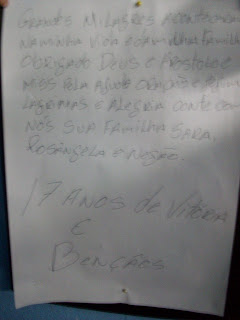 GRANDES MILAGRES ACONTECERAM
NA MINHA VIDA E DA MINHA FAMILIA
OBRIGADO DEUS E APOSTOLO E
MISS PELA AJUDA ORAÇÃO E
LAGRIMAS E ALEGRIA CONTE COM
NÓS SUA FAMILIA SARA,
ROSÂNGELA E NEGÃO.
17 ANOS de VITÓRIA
E
BENÇÃOS